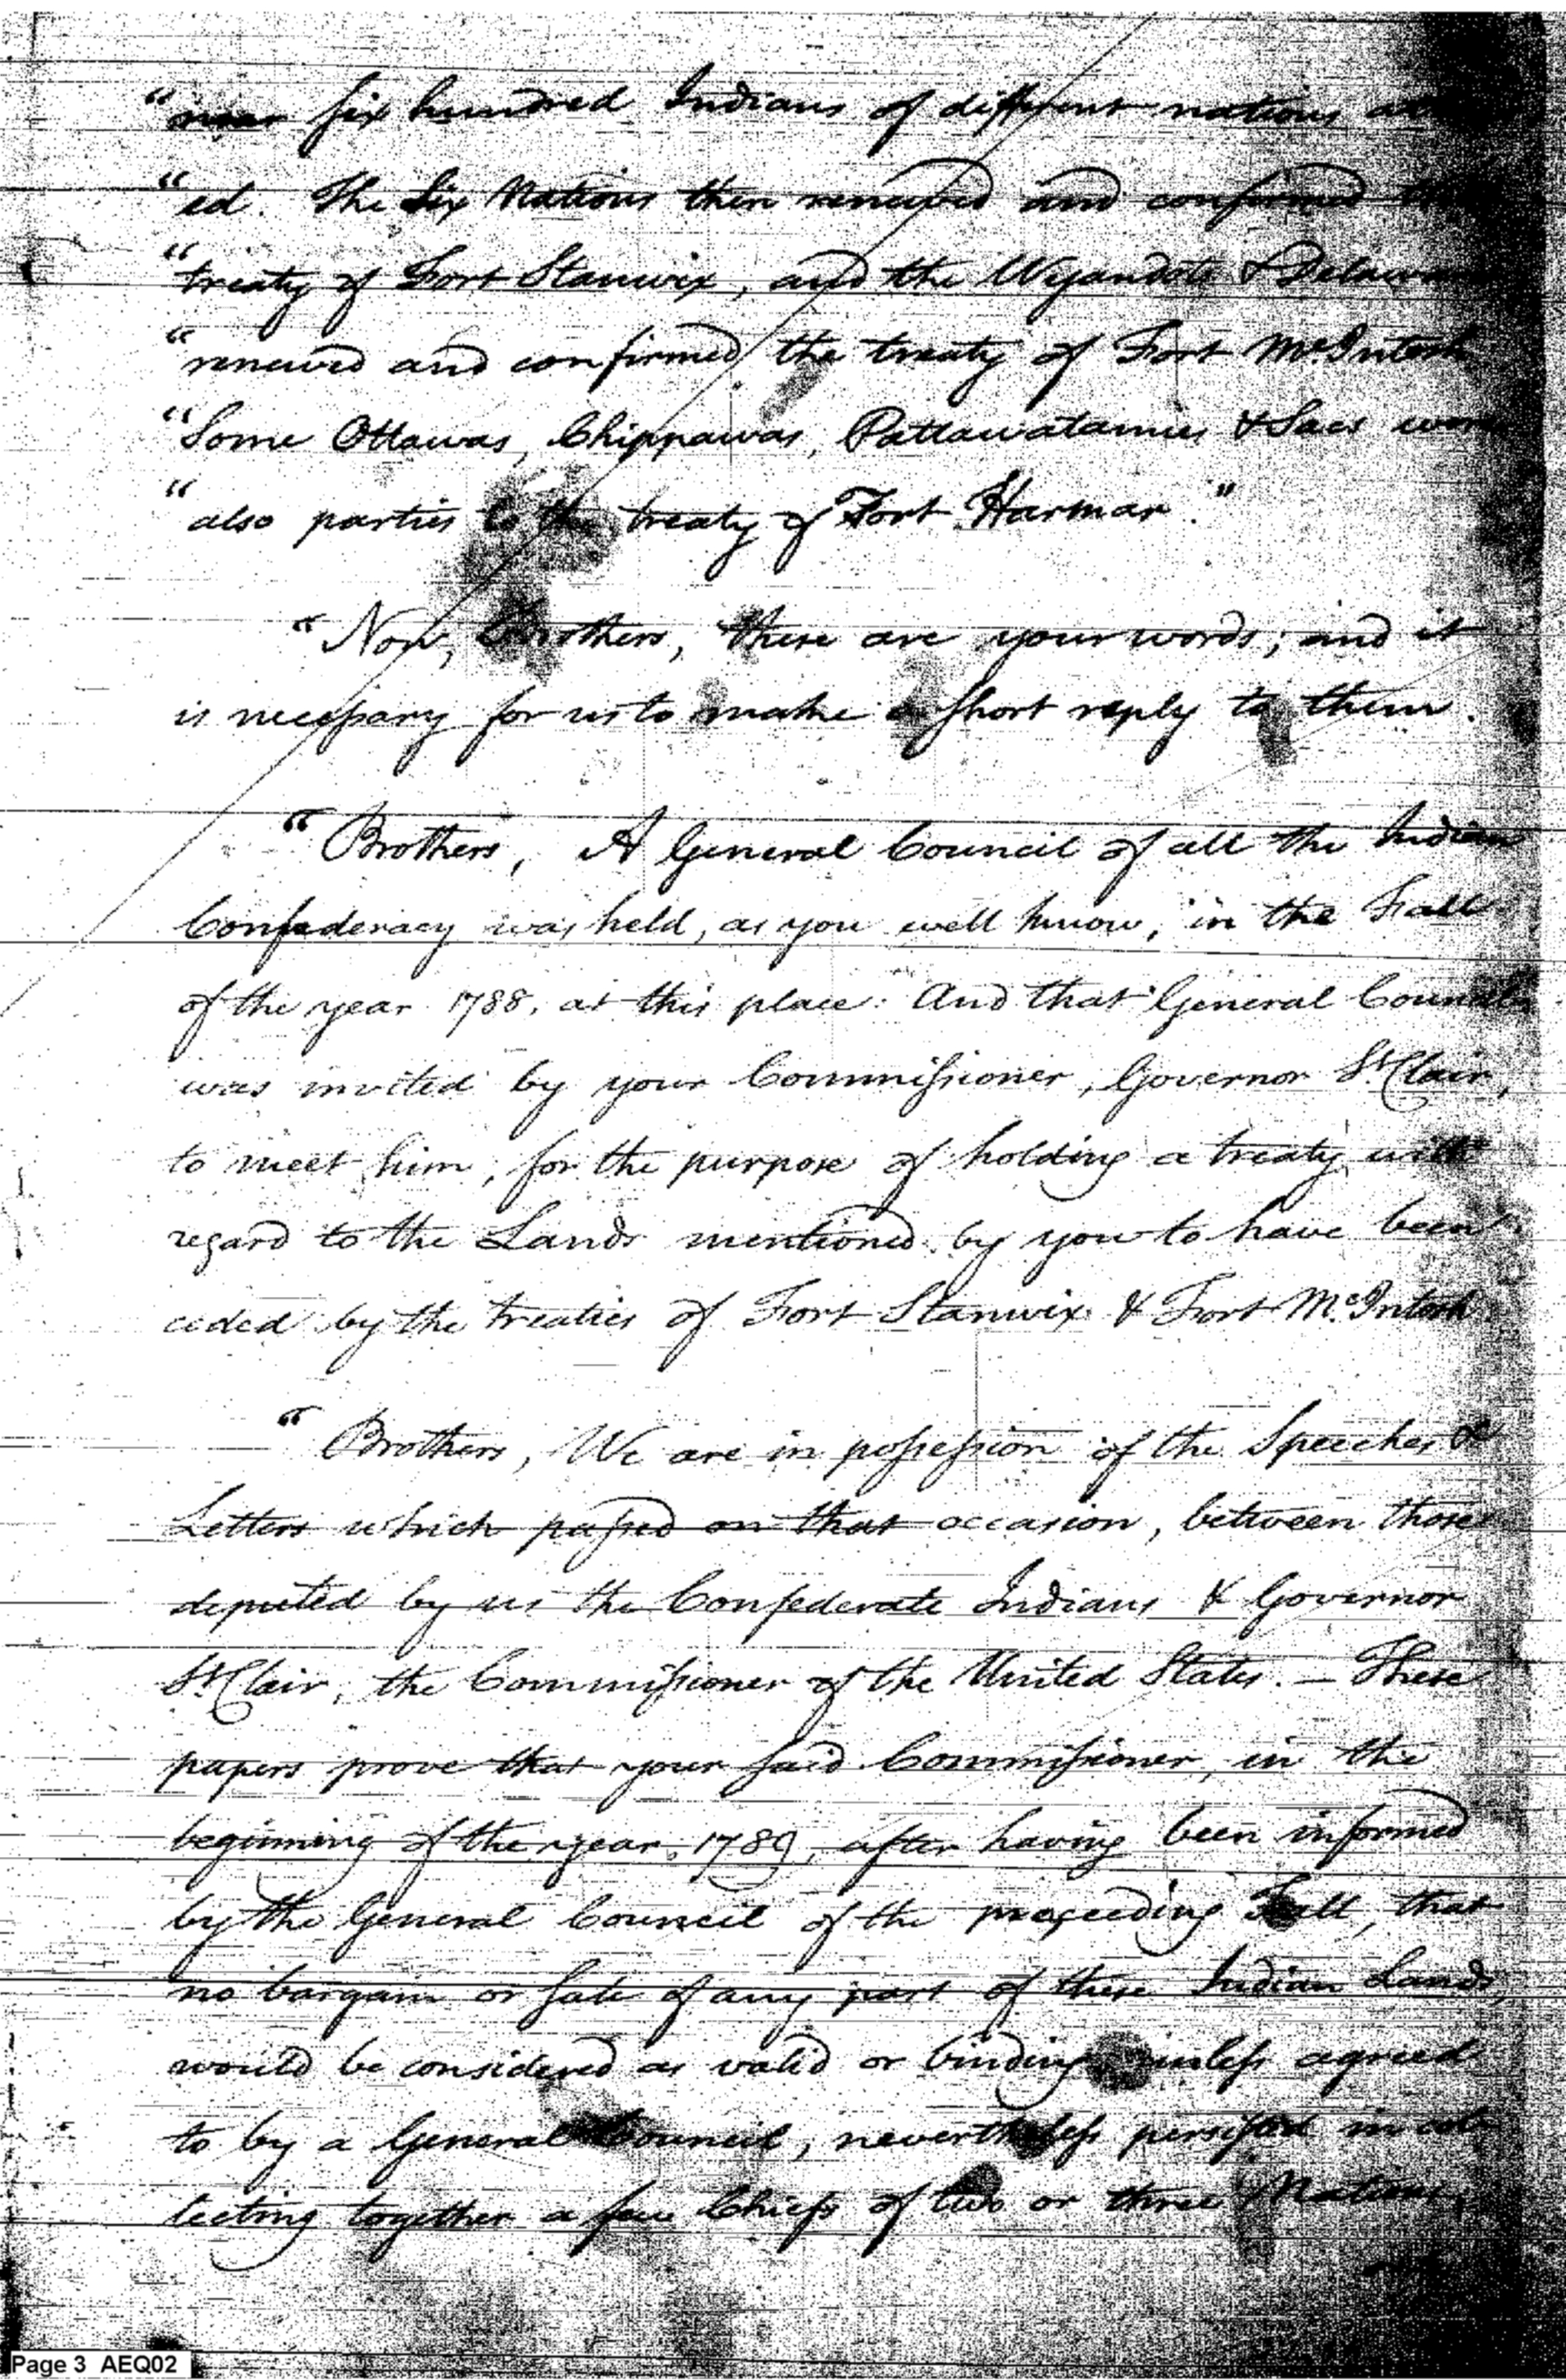 "near six hundred Indians of different nations
"ed. The Six Nations then renewed and confirmed the
"treaty of Fort Stanwix, and the Wyandots & Delawares
"renewed and confirmed the treaty of Fort McIntosh
"Some Ottawas, Chippawas, Pattawatamies & Sacs were
"also parties to the treaty of Fort Harmar."
"Now, Brothers, these are your words; and it
is necessary for us to make a short reply to them.
"Brothers, A General Council of all the Indian
Confederacy was held, as you well know, in the Fall
of the year 1788, at this place: And that General Council
was invited by your Commissioner, Governor St. Clair,
to meet him, for the purpose of holding a treaty with
regard to the Lands mentioned by you to have been
ceded by the treaties of Fort Stanwix & Fort McIntosh
"Brothers, We are in possession of the Speeches &
Letters which passed on that occasion, between those
deputed by us the Confederate Indians & Governor
St. Clair, the Commissioner of the United States. — These
papers prove that your said Commissioner, in the
beginning of the year, 1789, after having been informed
by the General Council of the preceeding Fall, that
no bargain or sale of any part of these Indian Lands,
would be considered as valid or binding unless agreed
to by a General Council, nevertheless persisted in col
lecting together a few Chiefs of two or three Nations
Page 3 AEQ02